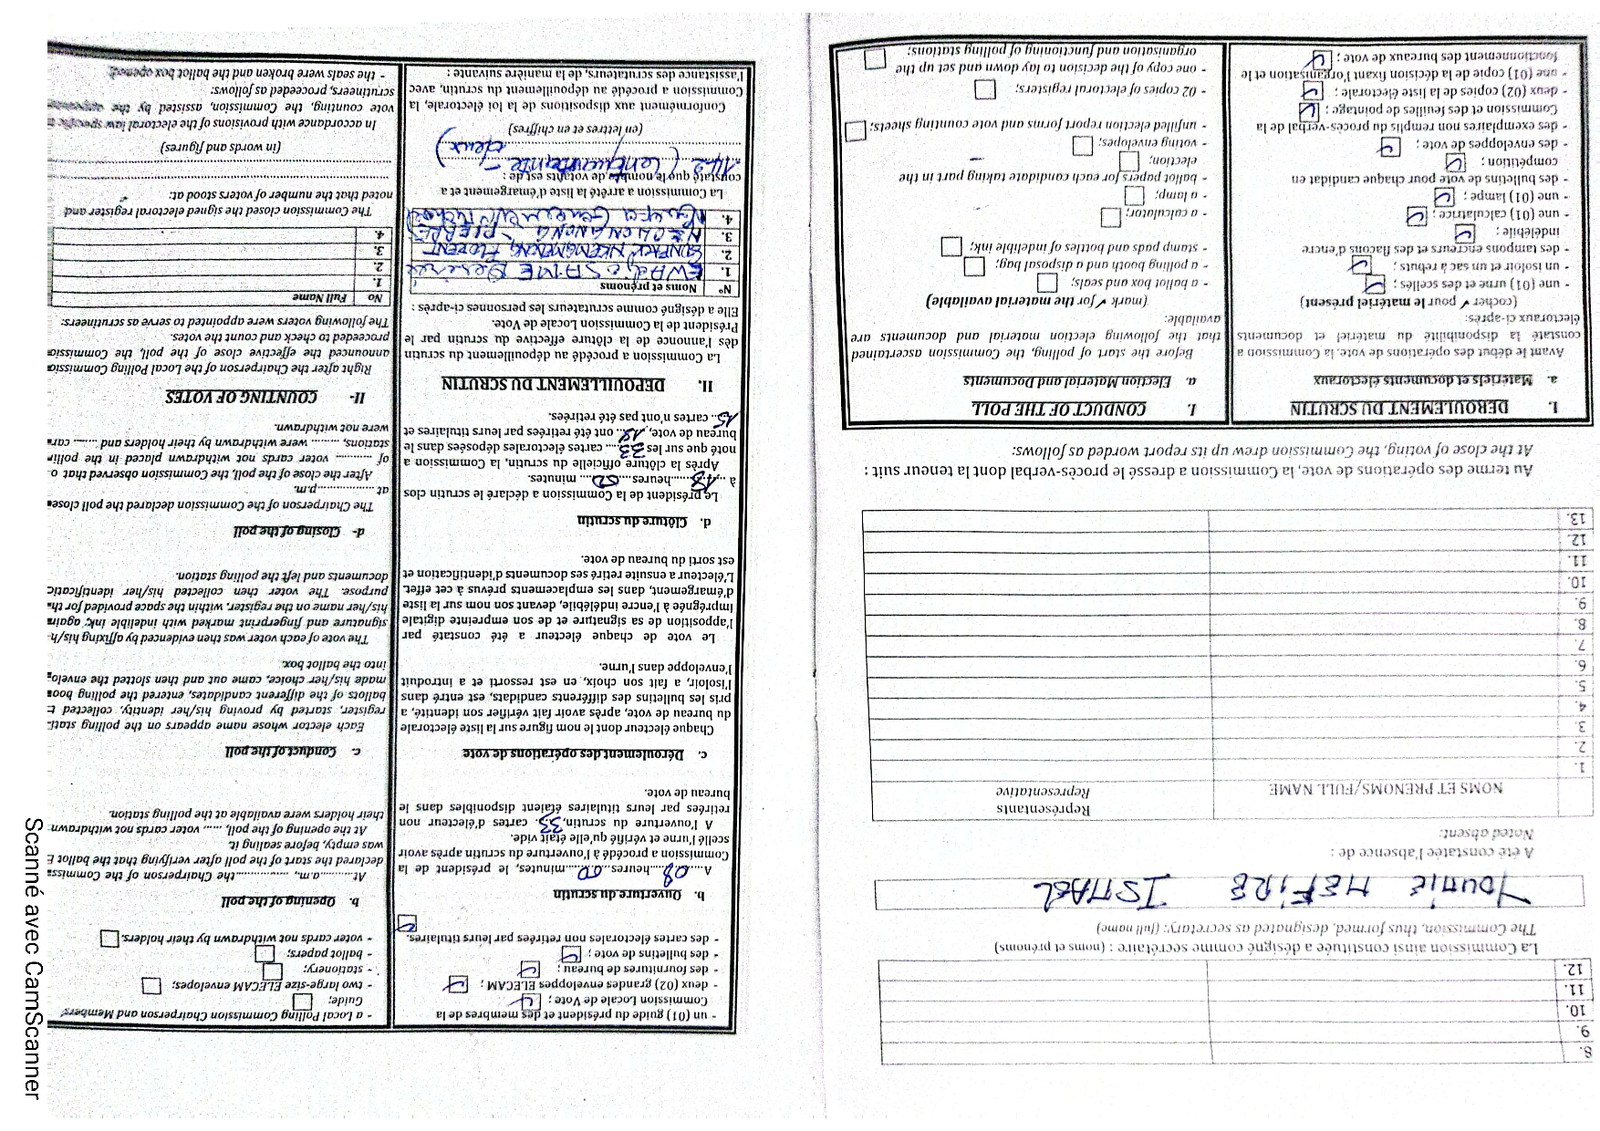 8.
9.
10.
11.
12.
La Commission ainsi constituée a désigné comme secrétaire : (noms et prénoms)
The Commission, thus formed, designated as secretary: (full name)
ISMAEL
A été constatée l'absence de :
Noted absent:
NOMS ET PRENOMS/FULL NAME
Représentants
Representative
1.
2.
3.
4.
5.
6.
7.
8.
9.
10.
11.
12.
13.
Au terme des opérations de vote, la Commission a dressé le procès-verbal dont la teneur suit :
At the close of voting, the Commission drew up its report worded as follows:
I. DEROULEMENT DU SCRUTIN
a. Matériels et documents électoraux
Avant le début des opérations de vote, la Commission a
constaté la disponibilité du matériel et documents
électoraux ci-après:
(cocher ✓ pour le matériel présent)
- une (01) urne et des scellés ;
- un isoloir et un sac à rebuts ;
- des tampons encreurs et des flacons d'encre
indélébile ;
- une (01) calculatrice ;
- une (01) lampe ;
- des bulletins de vote pour chaque candidat en
compétition ;
- des enveloppes de vote ;
- des exemplaires non remplis du procès-verbal de la
Commission et des feuilles de pointage ;
- deux (02) copies de la liste électorale ;
- une (01) copie de la décision fixant l'organisation et le
fonctionnement des bureaux de vote ;
I. CONDUCT OF THE POLL
a. Election Material and Documents
Before the start of polling, the Commission ascertained
that the following election material and documents are
available:
(mark ✓ for the material available)
- a ballot box and seals;
- a polling booth and a disposal bag;
- stamp pads and bottles of indelible ink;
- a calculator;
- a lamp;
- ballot papers for each candidate taking part in the
election;
- voting envelopes;
- unfilled election report forms and vote counting sheets;
- 02 copies of electoral registers;
- one copy of the decision to lay down and set up the
organisation and functioning of polling stations;
- un (01) guide du président et des membres de la
Commission Locale de Vote ;
- deux (02) grandes enveloppes ELECAM ;
- des fournitures de bureau ;
- des bulletins de vote ;
- des cartes électorales non retirées par leurs titulaires.
b. Ouverture du scrutin
A 08 heures 00 minutes, le président de la
Commission a procédé à l'ouverture du scrutin après avoir
scellé l'urne et vérifié qu'elle était vide.
A l'ouverture du scrutin, 33 cartes d'électeur non
retirées par leurs titulaires étaient disponibles dans le
bureau de vote.
c. Déroulement des opérations de vote
Chaque électeur dont le nom figure sur la liste électorale
du bureau de vote, après avoir fait vérifier son identité, a
pris les bulletins des différents candidats, est entré dans
l'isoloir, a fait son choix, en est ressorti et a introduit
l'enveloppe dans l'urne.
Le vote de chaque électeur a été constaté par
l'apposition de sa signature et de son empreinte digitale
imprégnée à l'encre indélébile, devant son nom sur la liste
d'émargement, dans les emplacements prévus à cet effet.
L'électeur a ensuite retiré ses documents d'identification et
est sorti du bureau de vote.
d. Clôture du scrutin
Le président de la Commission a déclaré le scrutin clos
à 18 heures 00 minutes.
Après la clôture officielle du scrutin, la Commission a
noté que sur les 33 cartes électorales déposées dans le
bureau de vote, 18 ont été retirées par leurs titulaires et
15 cartes n'ont pas été retirées.
II. DEPOUILLEMENT DU SCRUTIN
La Commission a procédé au dépouillement du scrutin
dès l'annonce de la clôture effective du scrutin par le
Président de la Commission Locale de Vote.
Elle a désigné comme scrutateurs les personnes ci-après :
N° Noms et prénoms
1.
2. FLORENT
3. PIERRE
4.
La Commission a arrêté la liste d'émargement et a
constaté que le nombre de votants est de :
142 ( cent quarante - deux )
(en lettres et en chiffres)
Conformément aux dispositions de la loi électorale, la
Commission a procédé au dépouillement du scrutin, avec
l'assistance des scrutateurs, de la manière suivante :
- a Local Polling Commission Chairperson and Members'
Guide;
- two large-size ELECAM envelopes;
- stationery;
- ballot papers;
- voter cards not withdrawn by their holders.
b. Opening of the poll
At ......... a.m., ......... the Chairperson of the Commiss
declared the start of the poll after verifying that the ballot
was empty, before sealing it.
At the opening of the poll, ...... voter cards not withdrawn
their holders were available at the polling station.
c. Conduct of the poll
Each elector whose name appears on the polling stati
register, started by providing his/her identity, collected t
ballots of the different candidates, entered the polling boo
made his/her choice, came out and then slotted the envelo
into the ballot box.
The vote of each voter was then evidenced by affixing his/h
signature and fingerprint marked with indelible ink, again
his/her name on the register, within the space provided for th
purpose. The voter then collected his/her identificatio
documents and left the polling station.
d- Closing of the poll
The Chairperson of the Commission declared the poll close
at ............... p.m.
After the close of the poll, the Commission observed that o
of ......... voter cards not withdrawn placed in the pollin
stations, ......... were withdrawn by their holders and ...... car
were not withdrawn.
II- COUNTING OF VOTES
Right after the Chairperson of the Local Polling Commissio
announced the effective close of the poll, the Commission
proceeded to check and count the votes.
The following voters were appointed to serve as scrutineers:
No Full Name
1.
2.
3.
4.
The Commission closed the signed electoral register and
noted that the number of voters stood at:
(in words and figures)
In accordance with provisions of the electoral law specific to
vote counting, the Commission, assisted by the
scrutineers, proceeded as follows:
- the seals were broken and the ballot box opened;
Scanné avec CamScanner